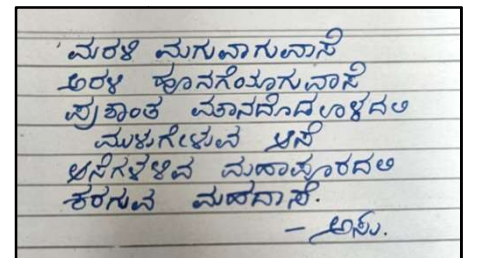 ಮರಳಿ ಮಗುವಾಗುವಾಸೆ
ಅರಳಿ ಹೂನಗೆಯಾಗುವಾಸೆ
ಪ್ರಶಾಂತ ಮೌನದೊಡಲಾಳದಲಿ
ಮುಳುಗೇಳುವ ಆಸೆ
ಆಸೆಗಳಳಿವ ಮಹಾಪೂರದಲಿ
ಕರಗುವ ಮಹದಾಸೆ.
- ಅಸು.